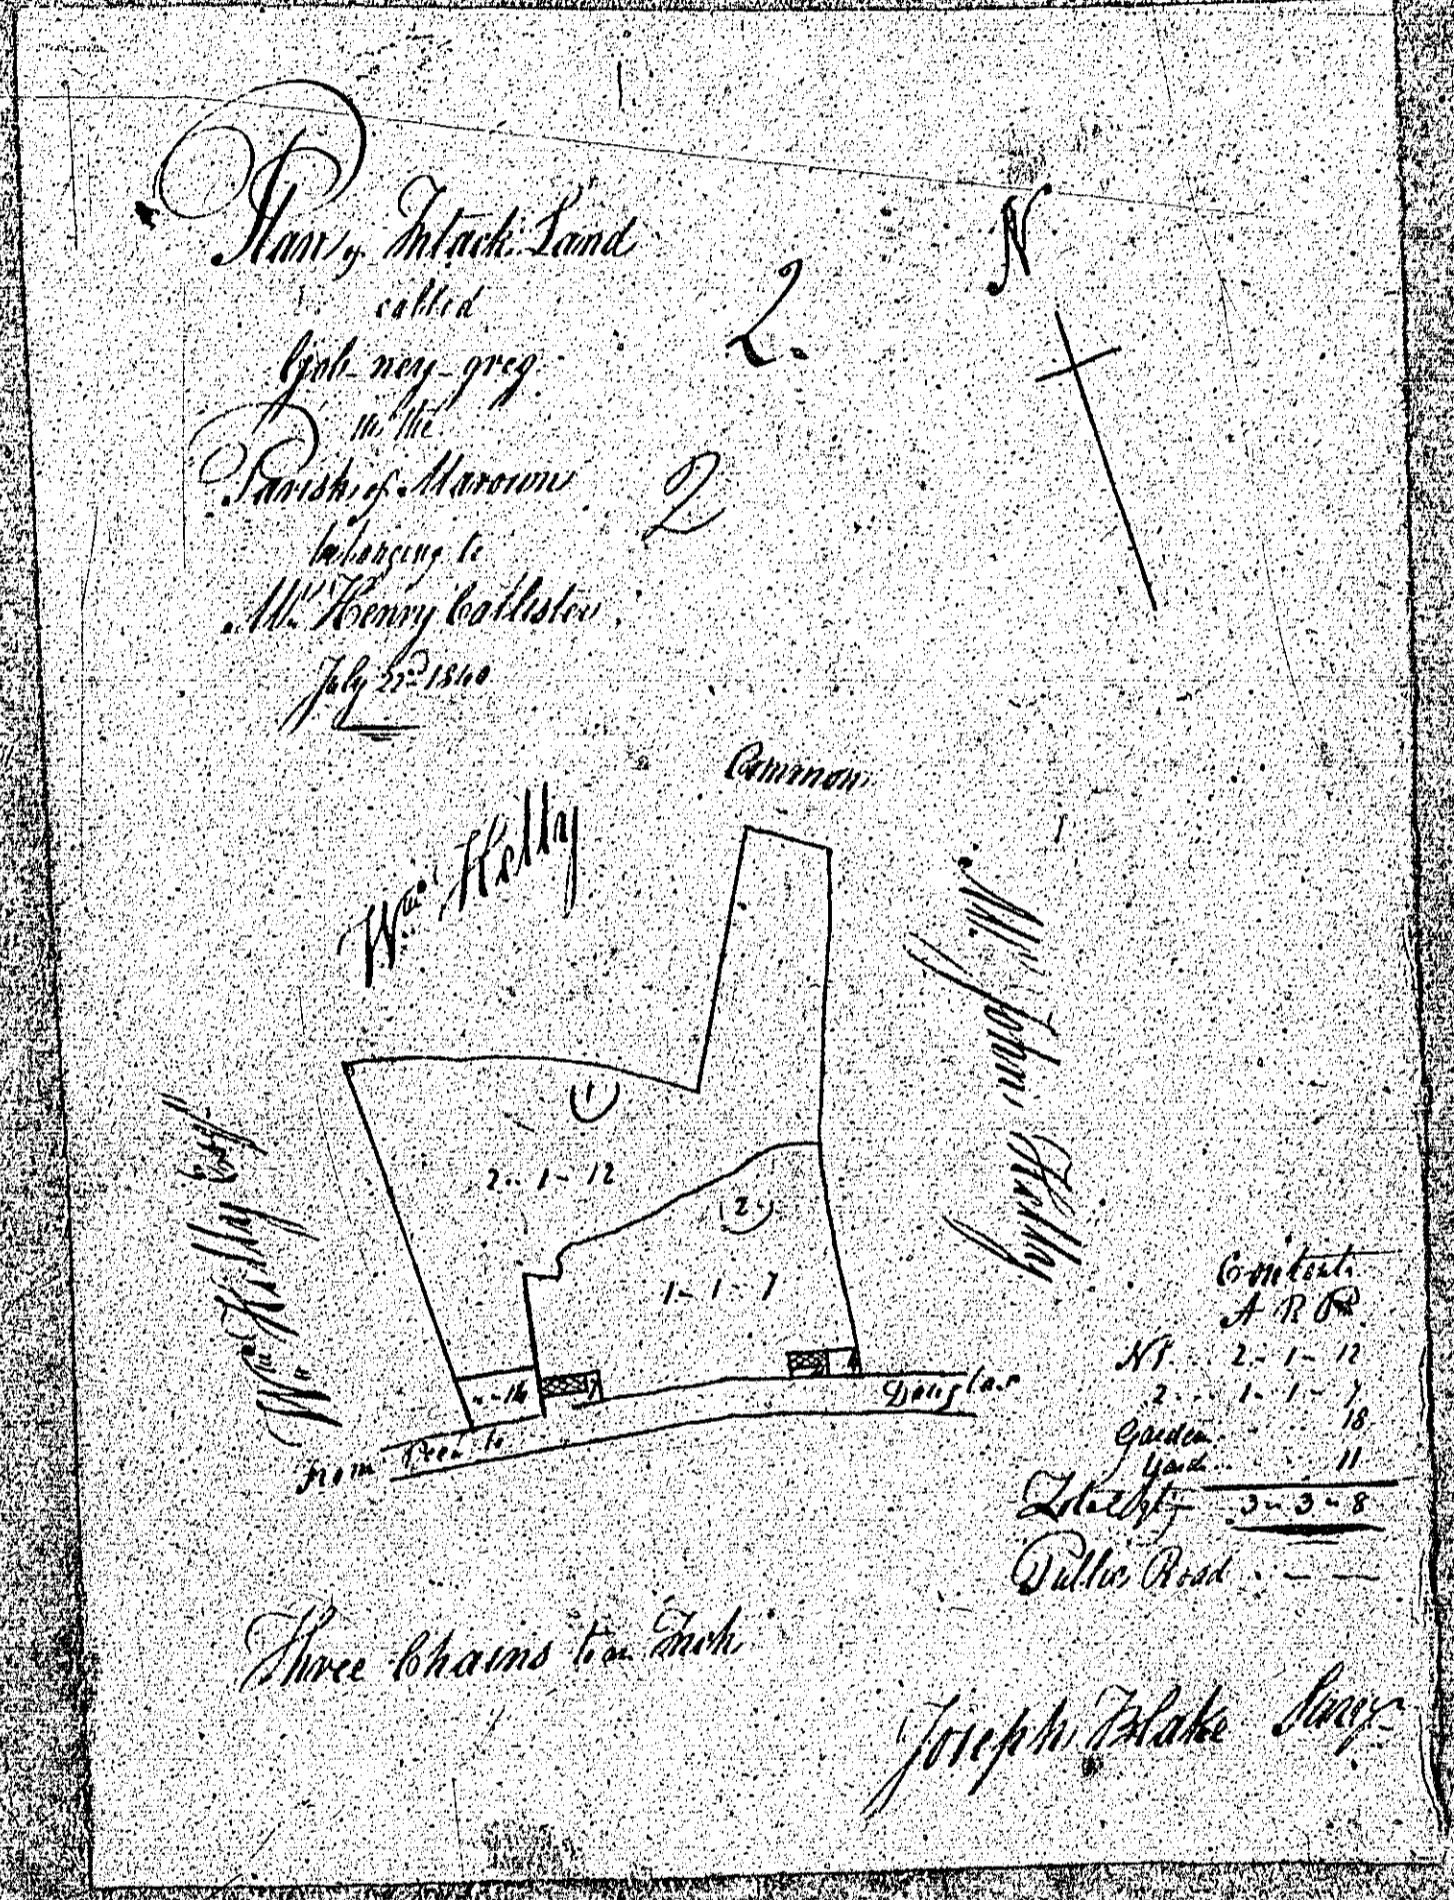 Plan of Intack Land
called
in the
Parish of Marown
belonging to
Mr. Henry Callister
July 22nd 1840
2.
2
N
Common
Wm. Kelly
Mr. John Kelly
Wm. Kelly
1
2.. 1 - 12
2.
1 - 1 - 7
Douglas
From Peel to
Content
A R P
No 1 . . . 2 - 1 - 12
2 . . . 1 - 1 - 7
Garden . . 18
Yard . . . 11
Total 3 - 3 - 8
Public Road . - -
Three Chains to an Inch
Joseph Blake Survr